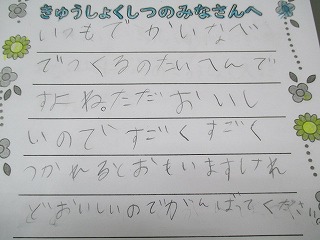 きゅうしょくしつのみなさんへ
いつもでかいなべ
でつくるのたいへんで
すよね。ただおいし
いのですごくすごく
つかれるとおもいますけれ
どおいしいのでがんばってくださ